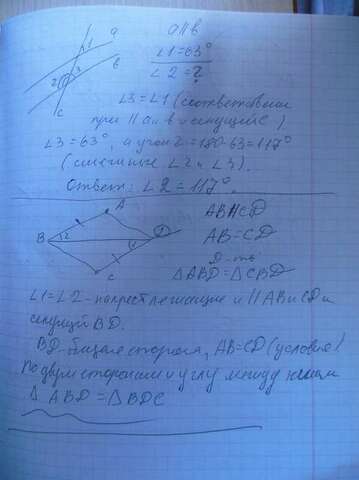 a
b
c
1
2
3
a||b
∠1=63°
∠2=?
∠3=∠1 (соответствен
при || a и b и секущей c)
∠3=63°, а угол 2=180-63=117°
(смежные ∠2 и ∠3).
Ответ: ∠2=117°.
A
B
C
2
1
AB||CD
AB=CD
Д-ть
△ABD=△CBD
∠1=∠2-накрест лежащие и || AB и CD и
секущей BD.
BD-общая сторона, AB=CD (условие)
По двум сторонам и углу между ними
△ABD=△BDC